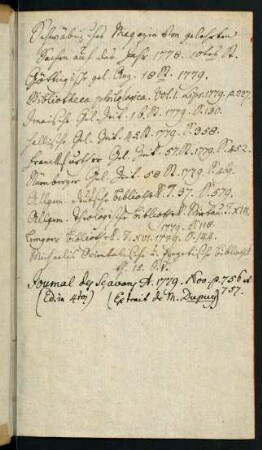 Schwäbisches Magazin von gelehrten
Sachen auf das Jahr 1778. 10tes St.
Göttingische gel. Anz. 18 St. 1779.
Bibliotheca philologica. Vol. I. Lips. 1779. p. 227.
Jenaische Gel. Zeit. 16 St. 1779. S. 130.
Hallische Gel. Zeit. 45 St. 1779. S. 358.
Frankfurther Gel. Zeit. 57. St. 1779. S. 452.
Nürnberger Gel. Zeit. 58 St. 1779. S.
Allgem. deutsche Biblioth. T. 37. S. 579.
Allgem. theologische Biblioth. T. XII.
1779. S. 118.
1779. S. 144.
Michaelis Orientalische u. Exegetische Biblioth.
Th. 15.
Journal des Sçavans A. 1779. Nov. p. 756 et
757.
(Ed. in 4to) (Extrait de M. Dupuy)